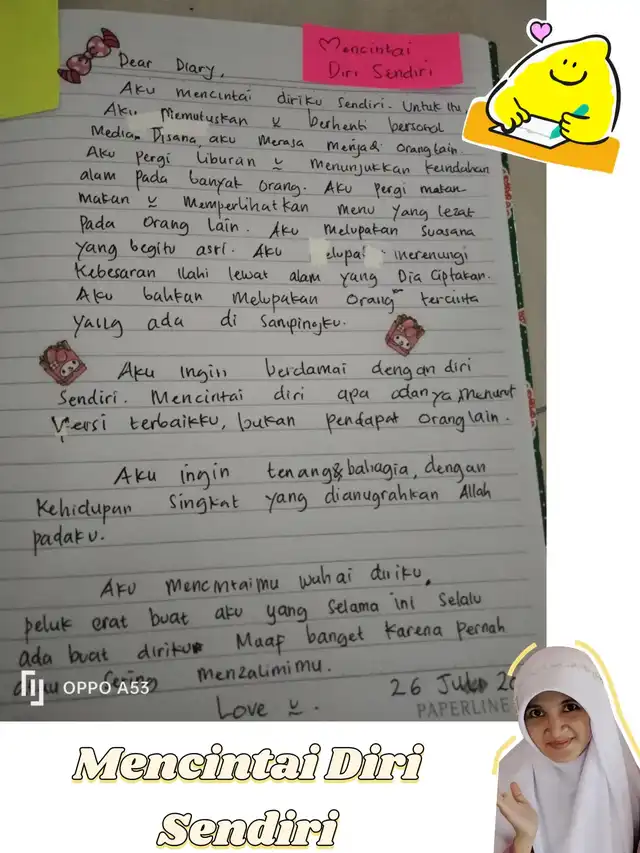 Mencintai
Diri Sendiri
Dear Diary,
Aku mencintai diriku sendiri. Untuk itu
Aku Memutuskan u berhenti bersosial
Media. Disana, aku merasa menjadi orang lain.
Aku pergi liburan u menunjukkan keindahan
alam pada banyak orang. Aku pergi makan
makan u memperlihatkan menu yang lezat
pada orang lain. Aku melupakan suasana
yang begitu asri. Aku elupa merenungi
Kebesaran Ilahi lewat alam yang Dia ciptakan.
Aku bahkan melupakan orang" tercinta
yang ada di sampingku.
Aku ingin berdamai dengan diri
Sendiri. Mencintai diri apa adanya menurut
Versi terbaikku, bukan pendapat orang lain.
Aku ingin tenang & bahagia, dengan
Kehidupan singkat yang dianugrahkan Allah
padaku.
Aku mencintaimu wahai diriku,
peluk erat buat aku yang selama ini selalu
ada buat diriku. Maaf banget karena pernah
sering menzalimimu.
Love u.
26 Juli 20
OPPO A53
PAPERLINE
Mencintai Diri
Sendiri